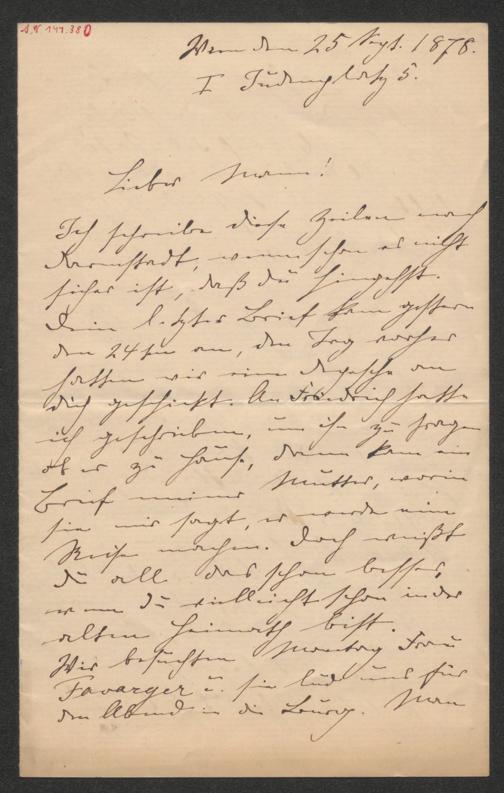 I.N 144.380
Wien den 25 Sept. 1878.
I Judenplatz 5.
Lieber Mann!
Ich schreibe diese Zeilen nach
Darmstadt, wennschon es nicht
sicher ist, daß du hingehst.
Dein letzter Brief kam gestern
den 24ten an, den Tag vorher
hatten wir eine Depesche an
dich geschickt. An Friedrich hatte
ich geschrieben, um ihn zu fragen
ob er zu Hause, dann kam ein
Brief meiner Mutter, worin
sie mir sagt, er werde eine
Reise machen. Doch weißt
du all das schon besser,
wenn du vielleicht schon in der
alten Heimath bist.
Wir besuchten Montag Frau
Favarger u. sie lud uns für
den Abend in die Burg. Man